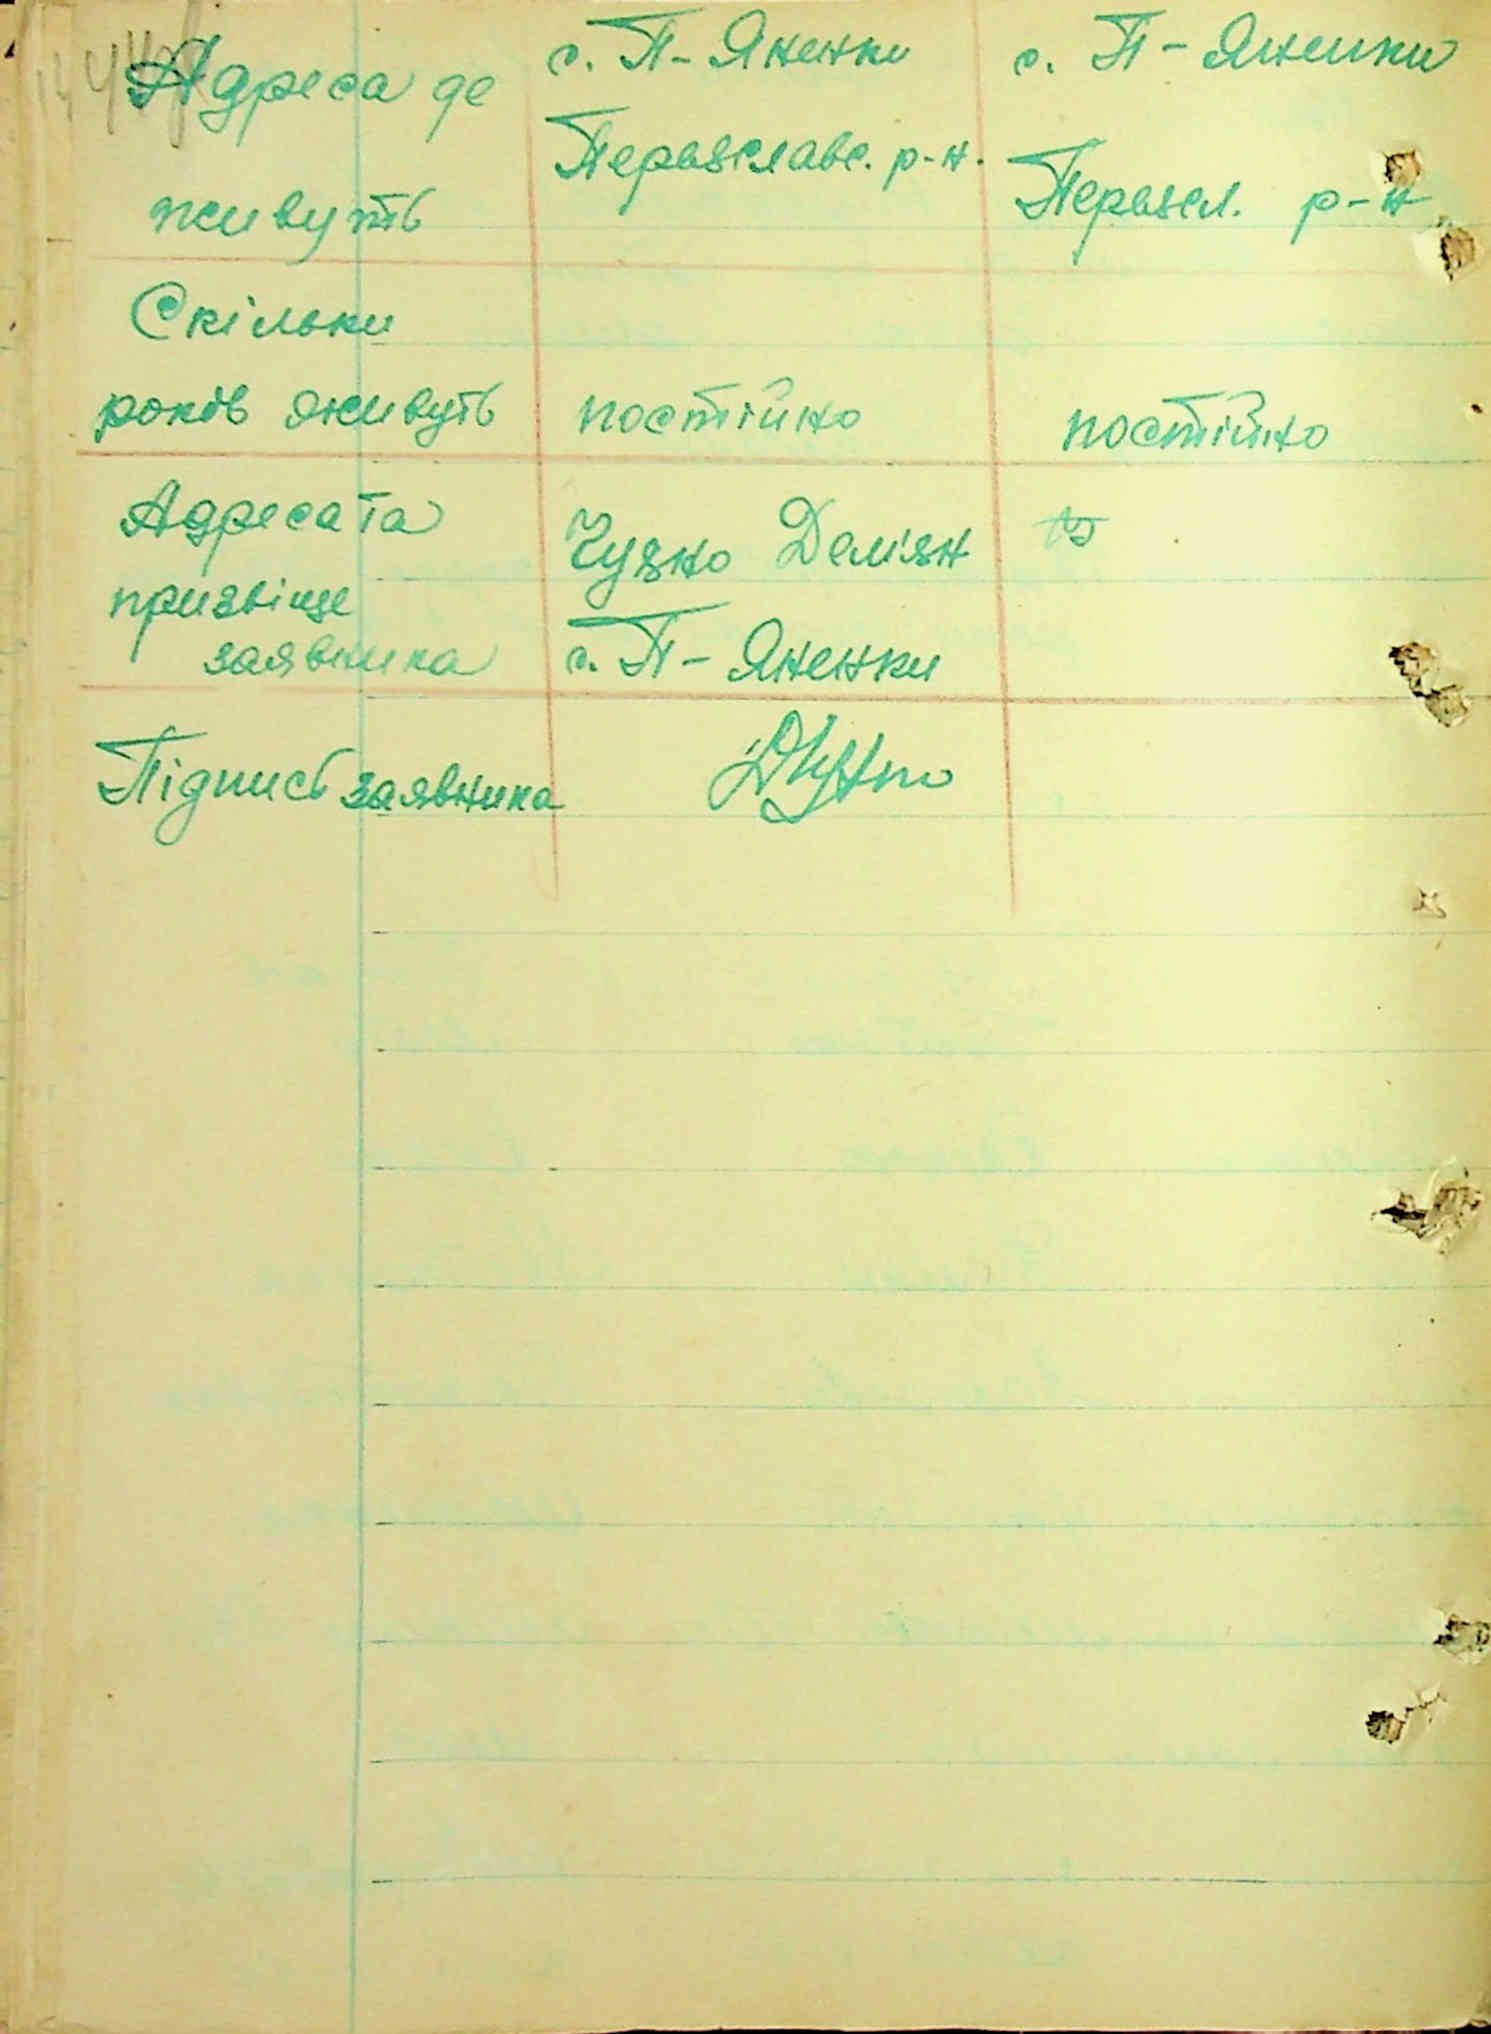 Адреса де
живуть
с. П-Яненки
Переяславс. р-н.
с. П-Яненки
Переясл. р-н
Скільки
років живуть
постійно
постійно
Адреса та
призвіще
заявника
Чузко Дем'ян
с. П-Яненки
Підпись заявника